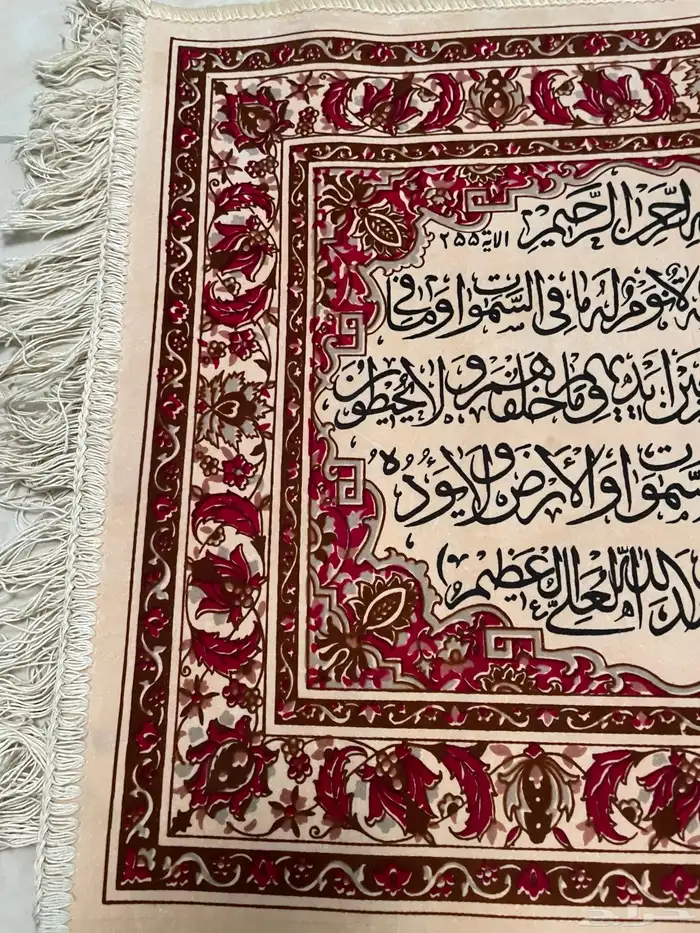 الرحمن الرحيم الآية ٢٥٥
ولا نوم له ما في السموات وما في
بين ايديهم وما خلفهم ولا يحيطون
السموات والأرض ولا يؤده
صدق الله العلي العظيم
حراج